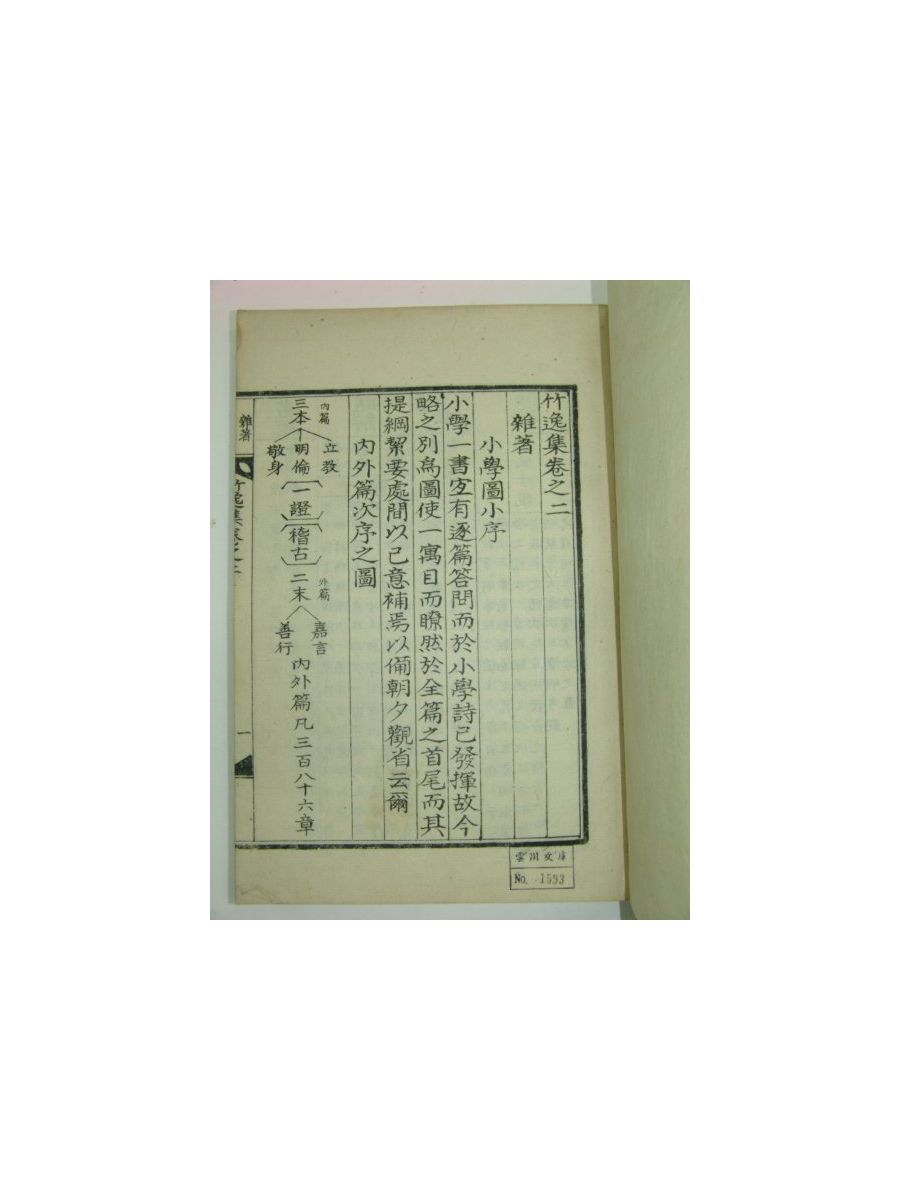 竹逸集卷之二
雜著
小學圖小序
小學一書宲有逐篇答問而於小學詩已發揮故今
略之別爲圖使一寓目而瞭然於全篇之首尾而其
提綱絜要處間以己意補焉以備朝夕觀省云爾
內外篇次序之圖
內篇
三本
立教
明倫
敬身
一證
稽古
外篇
二末
嘉言
善行
內外篇凡三百八十六章
雜著
竹逸集卷之二
一
雲川文庫
No. 1593